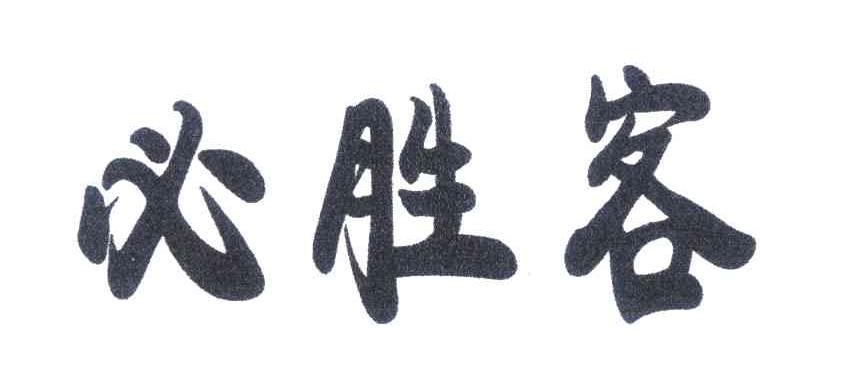 必胜客